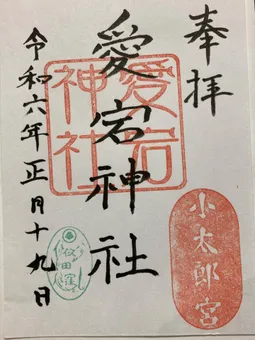 奉拝
愛宕神社
愛宕神社
小太郎宮
令和六年正月十九日
仮田窪